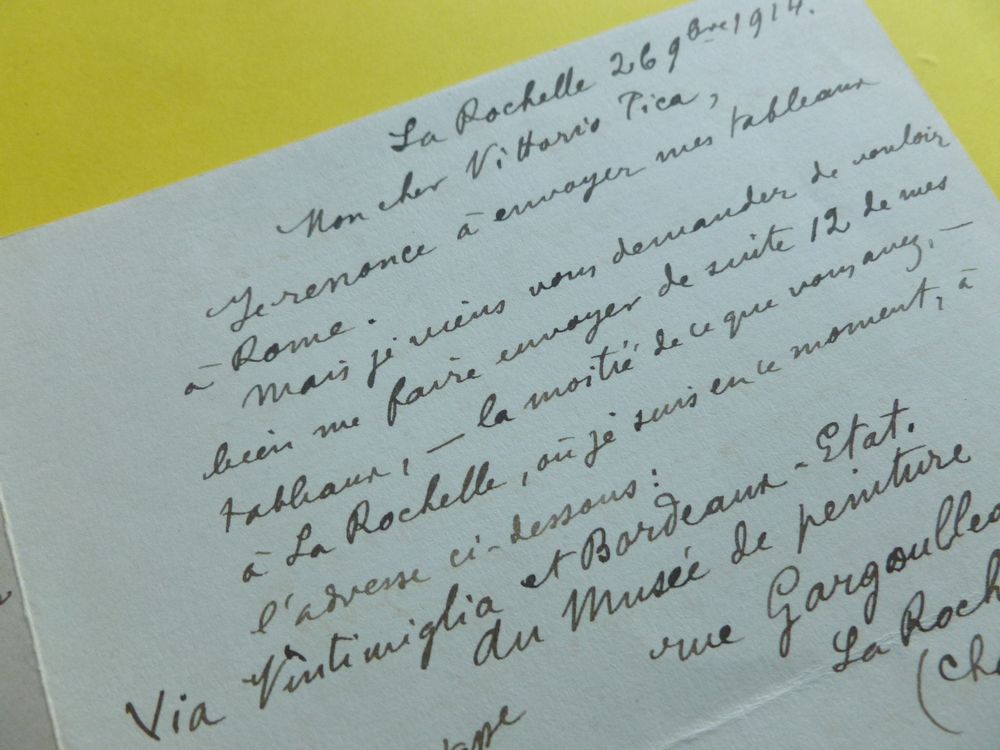 La Rochelle 26 9bre 1914.
Mon cher Vittorio Pica,
Je renonce à envoyer mes tableaux
à Rome.
Mais je viens vous demander de vouloir
bien me faire envoyer de suite 12 de mes
tableaux, — la moitié de ce que vous avez, —
à La Rochelle, où je suis en ce moment, à
l'adresse ci-dessous:
Via Vintimiglia et Bordeaux-Etat.
du Musée de peinture
rue Gargoulleau
La Roch
(Cha